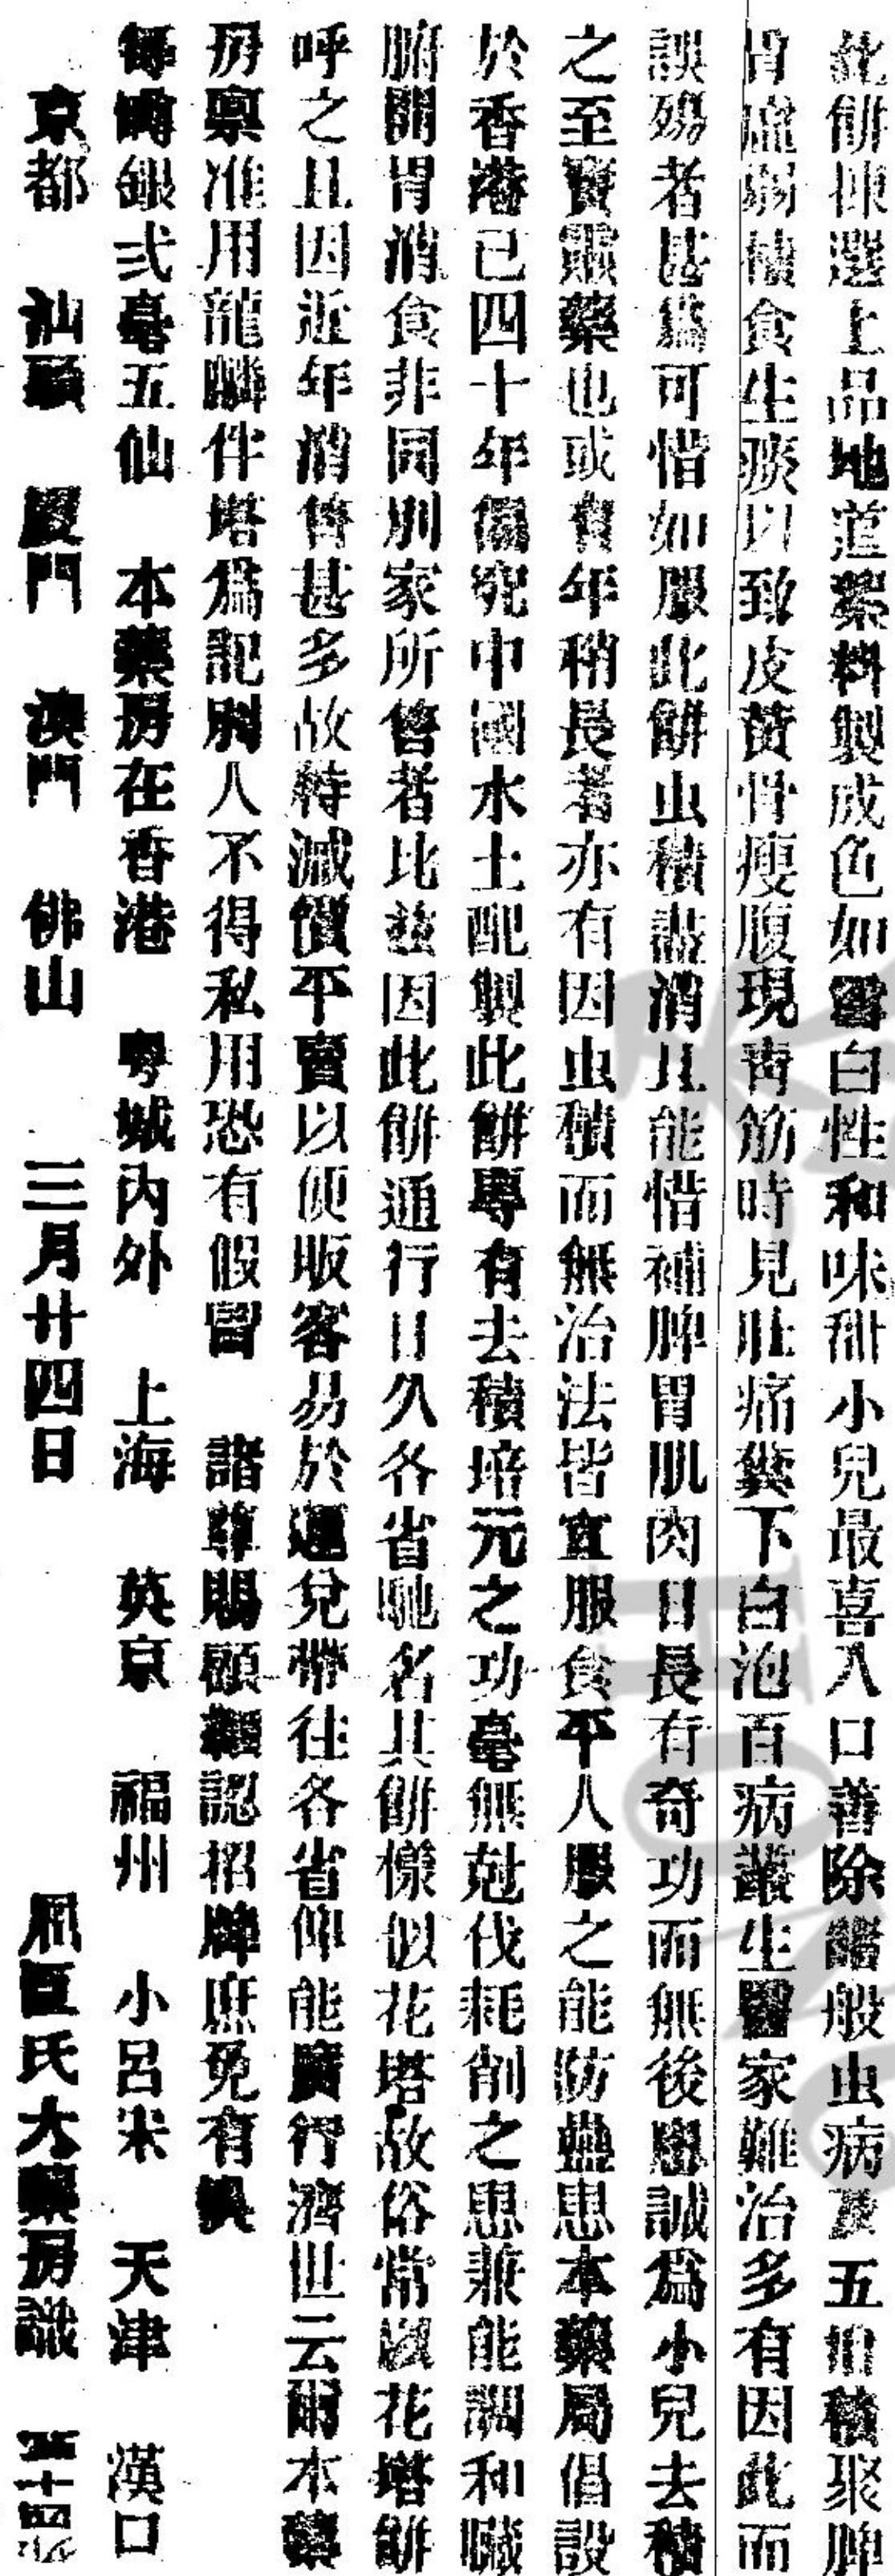 此餅揀選上品地道藥料製成色如雪白性和味甜小兒最喜入口善除諸般虫病及五疳積聚脾
胃虛弱積食生痰以致皮黃骨瘦腹現青筋時見肚痛糞下白泡百病叢生醫家難治多有因此而
誤殤者甚爲可惜如服此餅虫積盡消且能惜補脾胃肌肉日長有奇功而無後患誠爲小兒去積
之至寶靈藥也或有年稍長者亦有因虫積而無治法皆宜服食平人服之能防蠱患本藥局倡設
於香港已四十年偏究中國水土配製此餅專有去積培元之功毫無尅伐耗削之患兼能調和臟
腑開胃消食非同別家所售者比茲因此餅通行日久各省馳名其餅樣似花塔故俗常以花塔餅
呼之且因近年消售甚多故特減價平賣以便販客易於運兌帶往各省俾能廣行濟世云爾本藥
房禀准用龍麟伴塔爲記別人不得私用恐有假冒 諸尊賜顧認招牌庶免有悞
每嚩銀弍毫五仙 本藥房在香港 粤城內外 上海 英京 福州 小呂宋 天津 漢口
京都 汕頭 厦門 澳門 佛山 三月廿四日 屈臣氏大藥房識 十四